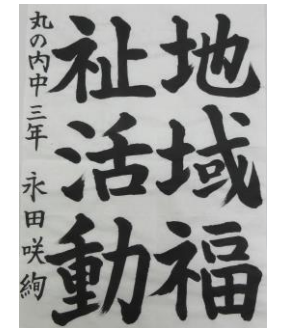 地域福
祉活動
丸の内中三年 永田咲絢